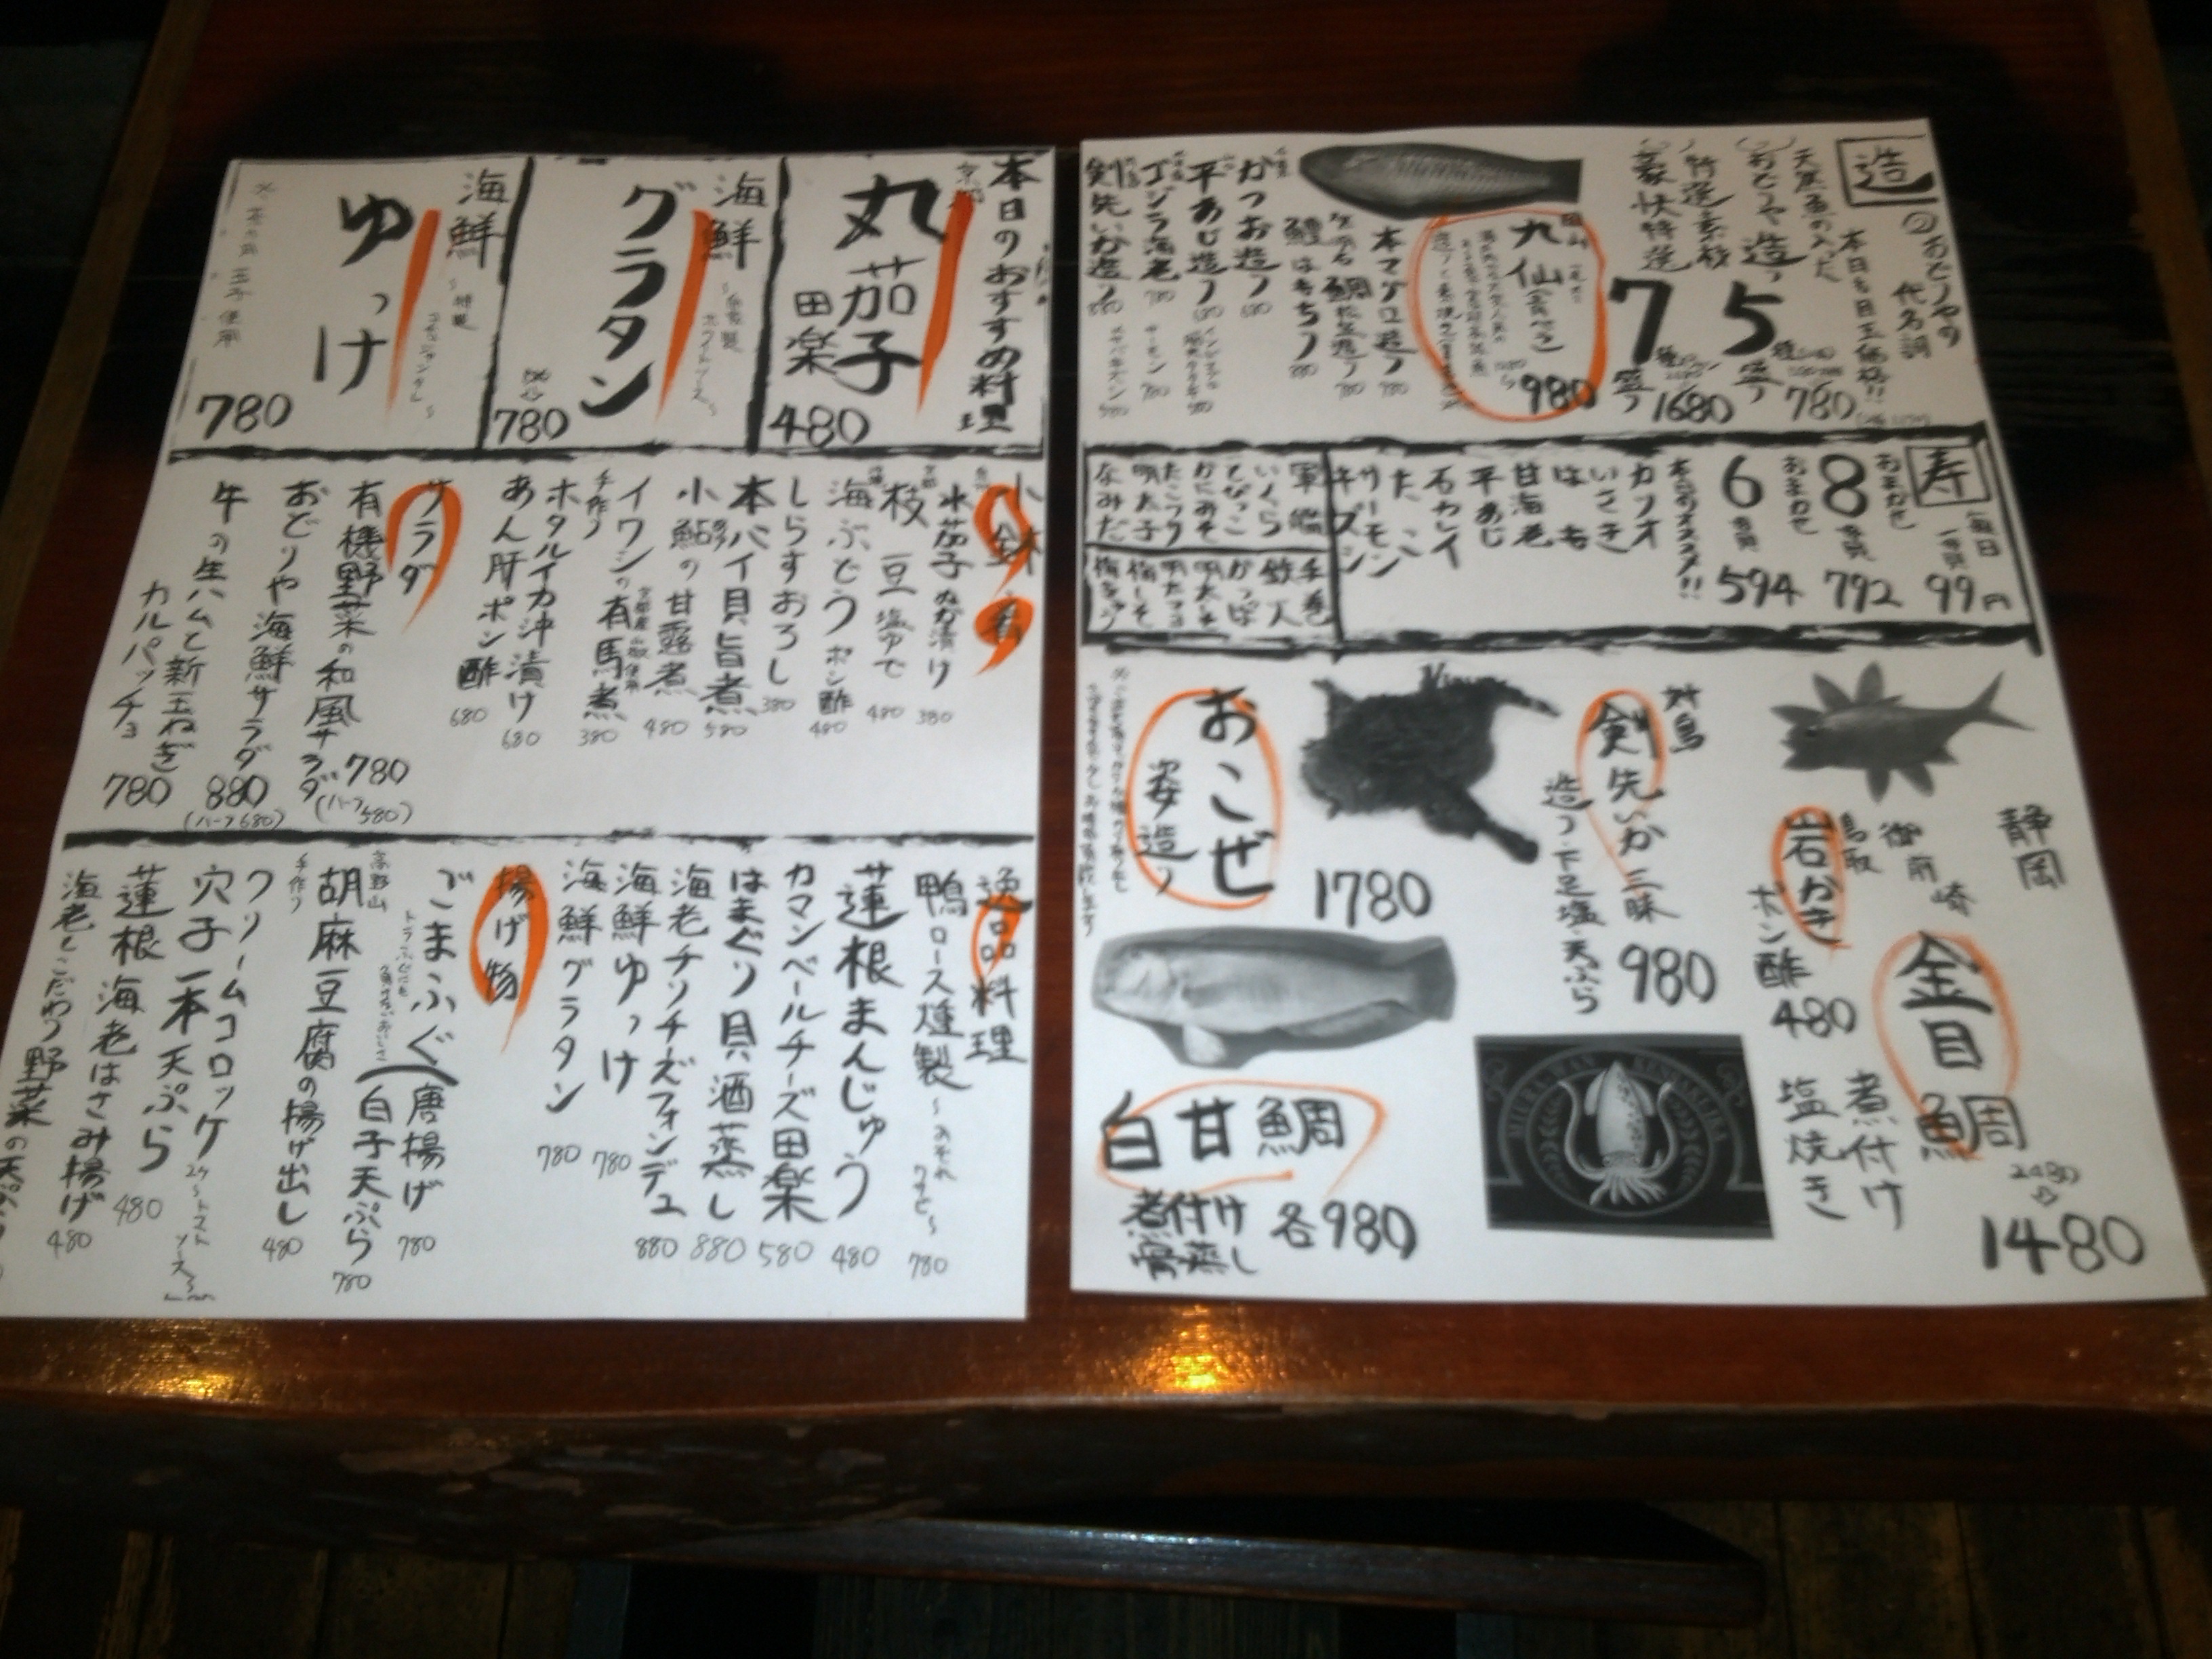 造
おどりやの
代名詞
本日も目玉価格!!
天然魚の入った
おどりや造り
5種盛り
780
特選素材
豪快特選
7種盛り
1680
980
本マグロ造り
780
780
鱧はもちり
880
かつお造り
680
平あじ造り
680
780
サーモン
780
剣先いか造り
880
寿
毎日
一貫
99円
おまかせ
8貫
792
おまかせ
6貫
594
本日のオススメ!!
カツオ
いさき
はも
甘海老
平あじ
石カレイ
たこ
サーモン
キズシ
軍艦
いくら
とびっこ
かにみそ
明太子
なみだ
手巻
鉄人
かっぱ
梅しそ
梅きゅう
静岡
御前崎
金目鯛
2480
1480
煮付け
塩焼き
鳥取
岩かき
ポン酢
480
対馬
剣先いか三昧
造り・下足塩・天ぷら
980
おこぜ
姿造り
1780
白甘鯛
煮付け
骨蒸し
各980
本日のおすすめ料理
京都
丸茄子
田楽
480
海鮮
グラタン
~自家製
ホワイトソース~
780
海鮮
ゆっけ
~特製
コチュジャンダレ~
780
小鉢
水茄子ぬか漬け
380
枝豆塩ゆで
480
沖縄
海ぶどうポン酢
480
しらすおろし
380
本バイ貝旨煮
580
小鮎の甘露煮
480
イワシの有馬煮
380
手作り
ホタルイカ沖漬け
680
あん肝ポン酢
680
サラダ
有機野菜の和風サラダ
780
(ハーフ580)
おどりや海鮮サラダ
880
(ハーフ680)
牛の生ハムと新玉ねぎ
カルパッチョ
780
逸品料理
鴨ロース燻製
780
蓮根まんじゅう
480
カマンベールチーズ田楽
580
はまぐり貝酒蒸し
880
海老チリチーズフォンデュ
880
海鮮ゆっけ
780
海鮮グラタン
780
揚げ物
ごまふぐ
唐揚げ
780
白子天ぷら
780
高野山
胡麻豆腐の揚げ出し
480
手作り
クリームコロッケ
2ケ~トマト
ソース~
穴子一本天ぷら
480
蓮根海老はさみ揚げ
480
海老とこだわり野菜の天ぷら